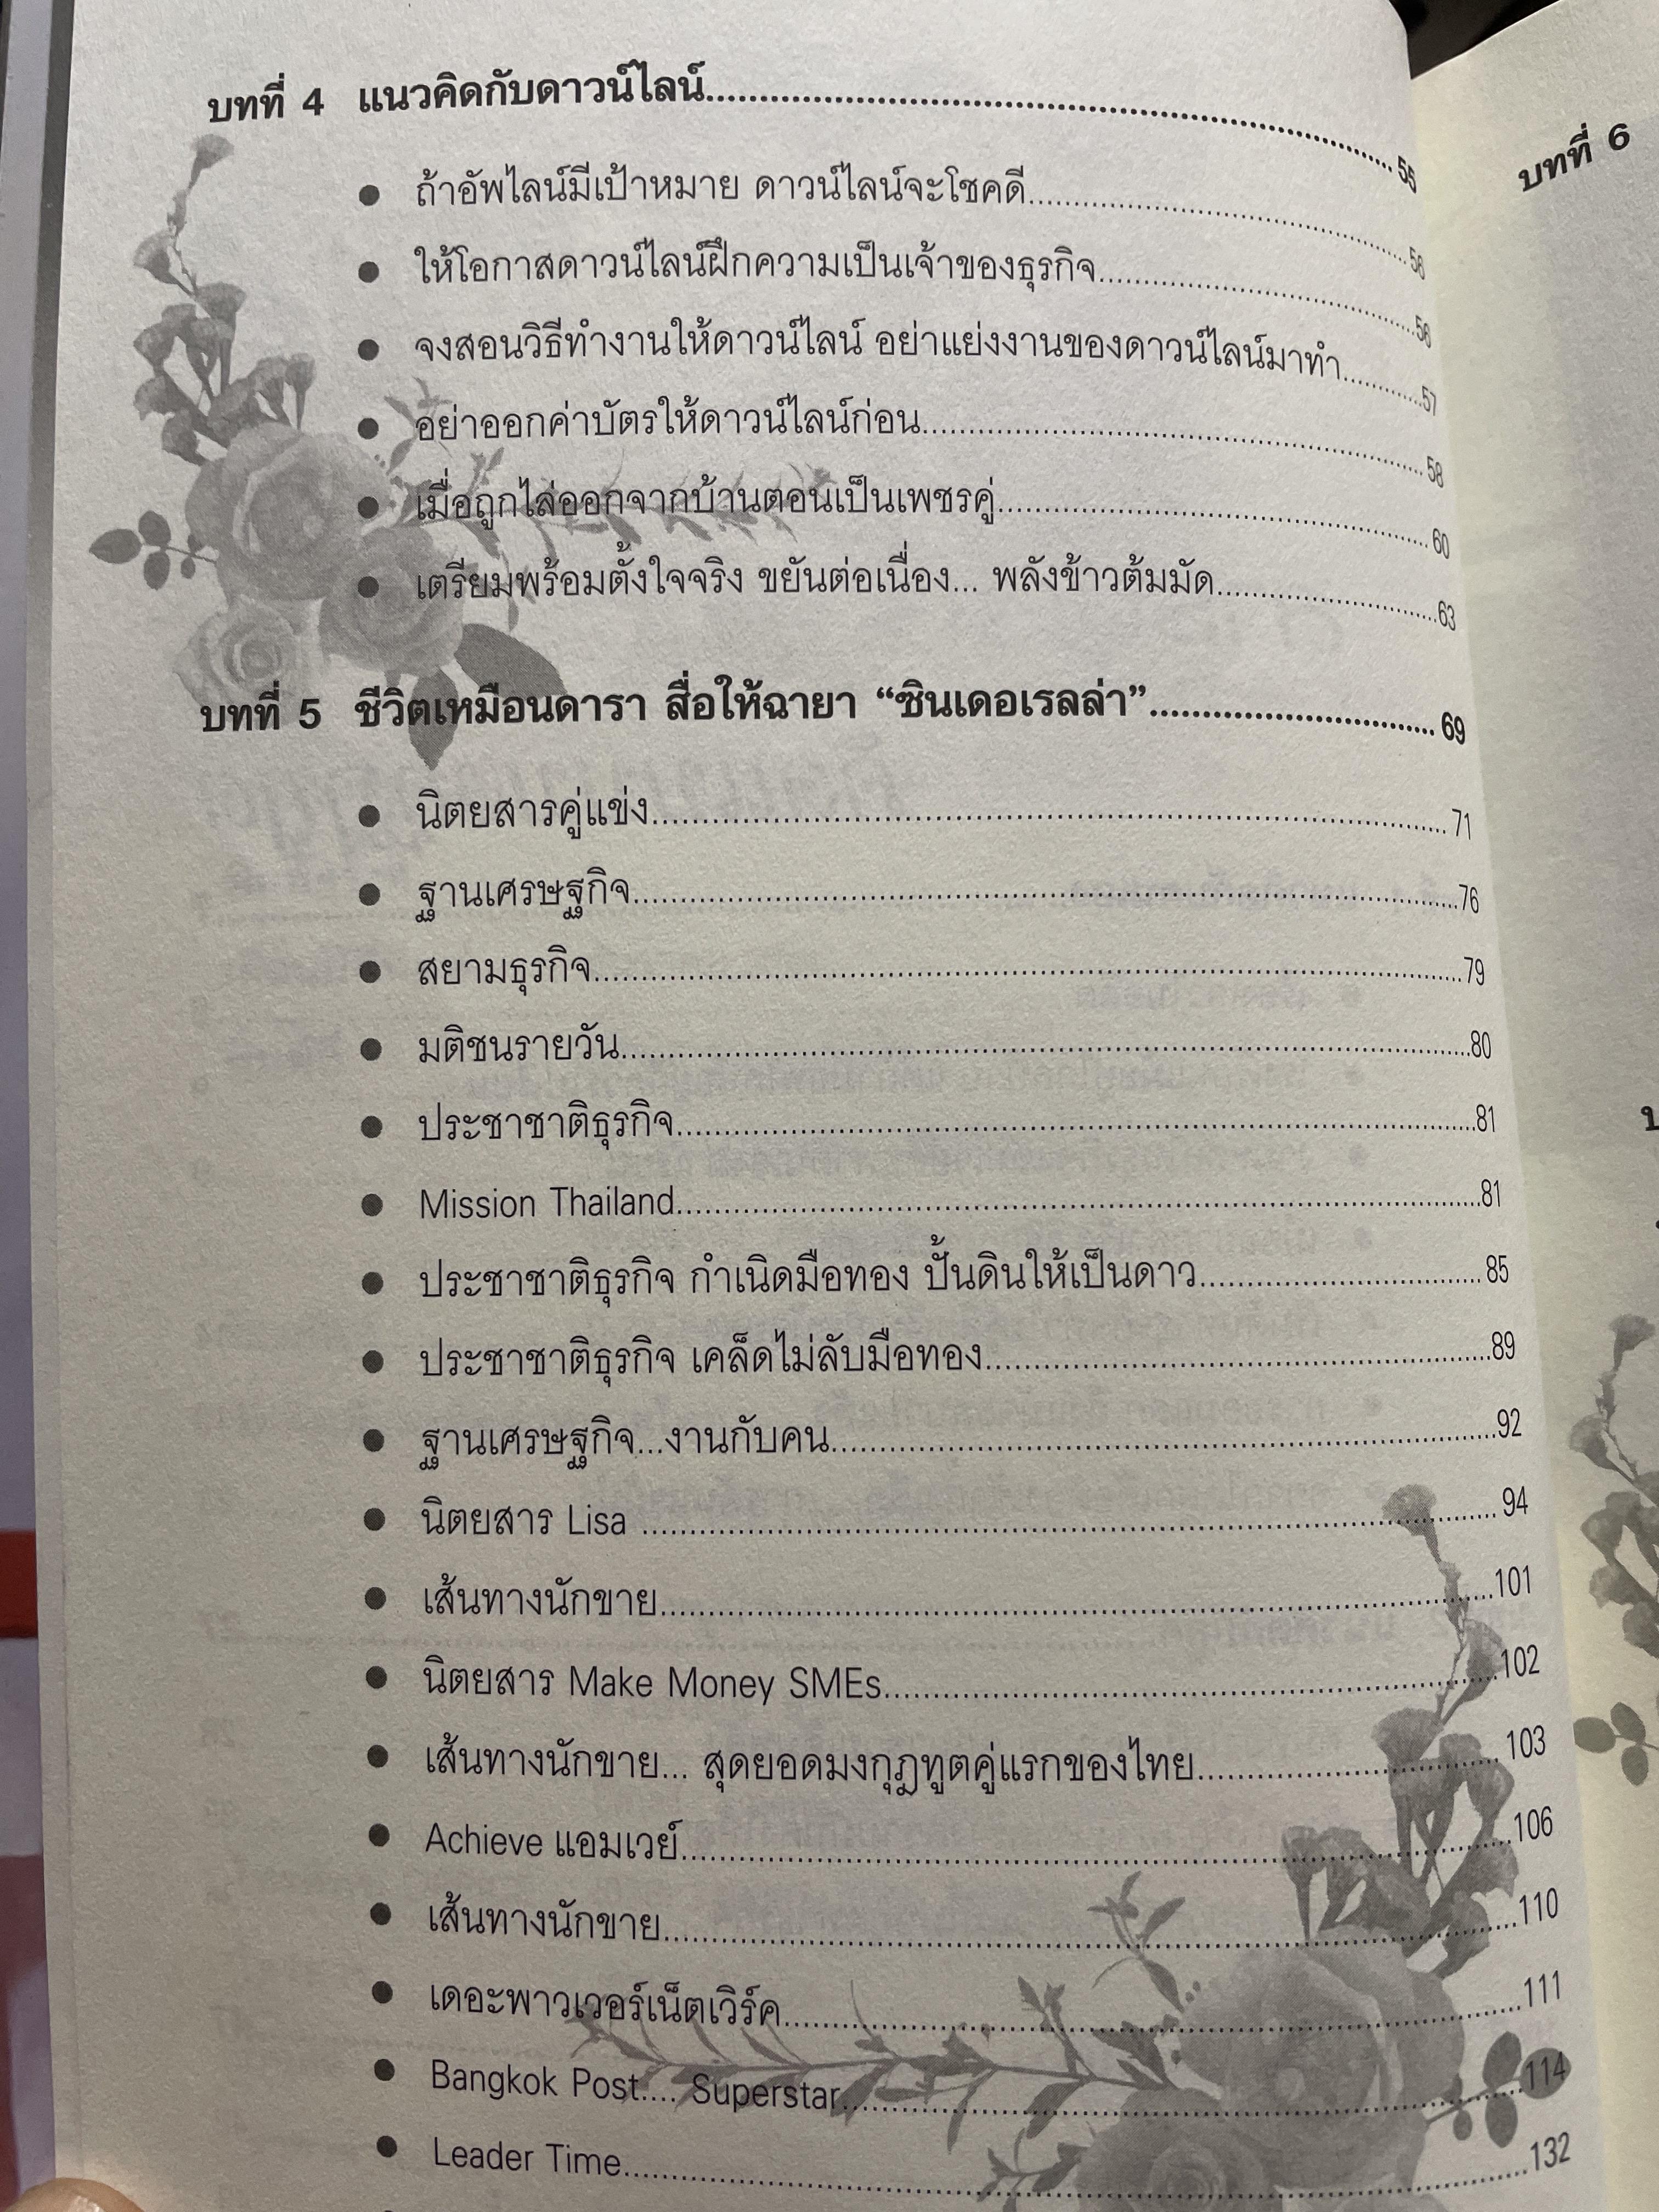 บทที่ 4 แนวคิดกับดาวน์ไลน์.......... 55
● ถ้าอัพไลน์มีเป้าหมาย ดาวน์ไลน์จะโชคดี.......... 56
● ให้โอกาสดาวน์ไลน์ฝึกความเป็นเจ้าของธุรกิจ.......... 56
● จงสอนวิธีทำงานให้ดาวน์ไลน์ อย่าแย่งงานของดาวน์ไลน์มาทำ.......... 57
● อย่าออกค่าบัตรให้ดาวน์ไลน์ก่อน.......... 58
● เมื่อถูกไล่ออกจากบ้านตอนเป็นเพชรคู่.......... 60
● เตรียมพร้อมตั้งใจจริง ขยันต่อเนื่อง... พลังข้าวต้มมัด.......... 63
บทที่ 5 ชีวิตเหมือนดารา สื่อให้ฉายา “ซินเดอเรลล่า”.......... 69
● นิตยสารคู่แข่ง.......... 71
● ฐานเศรษฐกิจ.......... 76
● สยามธุรกิจ.......... 79
● มติชนรายวัน.......... 80
● ประชาชาติธุรกิจ.......... 81
● Mission Thailand.......... 81
● ประชาชาติธุรกิจ กำเนิดมือทอง ปั้นดินให้เป็นดาว.......... 85
● ประชาชาติธุรกิจ เคล็ดไม่ลับมือทอง.......... 89
● ฐานเศรษฐกิจ...งานกับคน.......... 92
● นิตยสาร Lisa .......... 94
● เส้นทางนักขาย.......... 101
● นิตยสาร Make Money SMEs.......... 102
● เส้นทางนักขาย... สุดยอดมงกุฎทูตคู่แรกของไทย.......... 103
● Achieve แอมเวย์.......... 106
● เส้นทางนักขาย.......... 110
● เดอะพาวเวอร์เน็ตเวิร์ค.......... 111
● Bangkok Post.... Superstar.......... 114
● Leader Time.......... 132
บทที่ 6